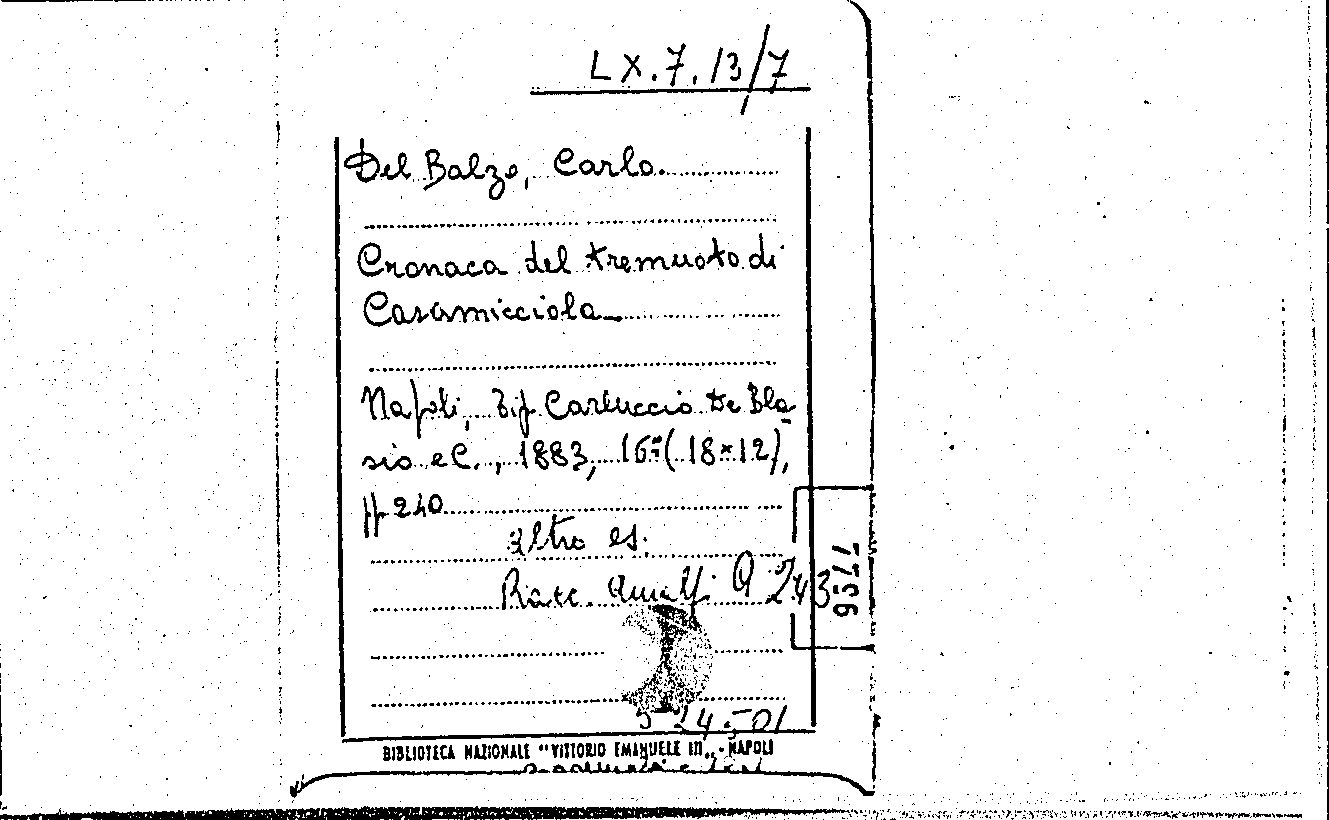 LX.7.13/7
Del Balzo, Carlo.
Cronaca del tremuoto di
Casamicciola
Napoli, Tip. Carluccio De Bla
sio e C., 1883, 16º (18×12),
pp 240
altro es.
Racc. Amalfi A 243
7756
24.501
BIBLIOTECA NAZIONALE "VITTORIO EMANUELE III„ - NAPOLI